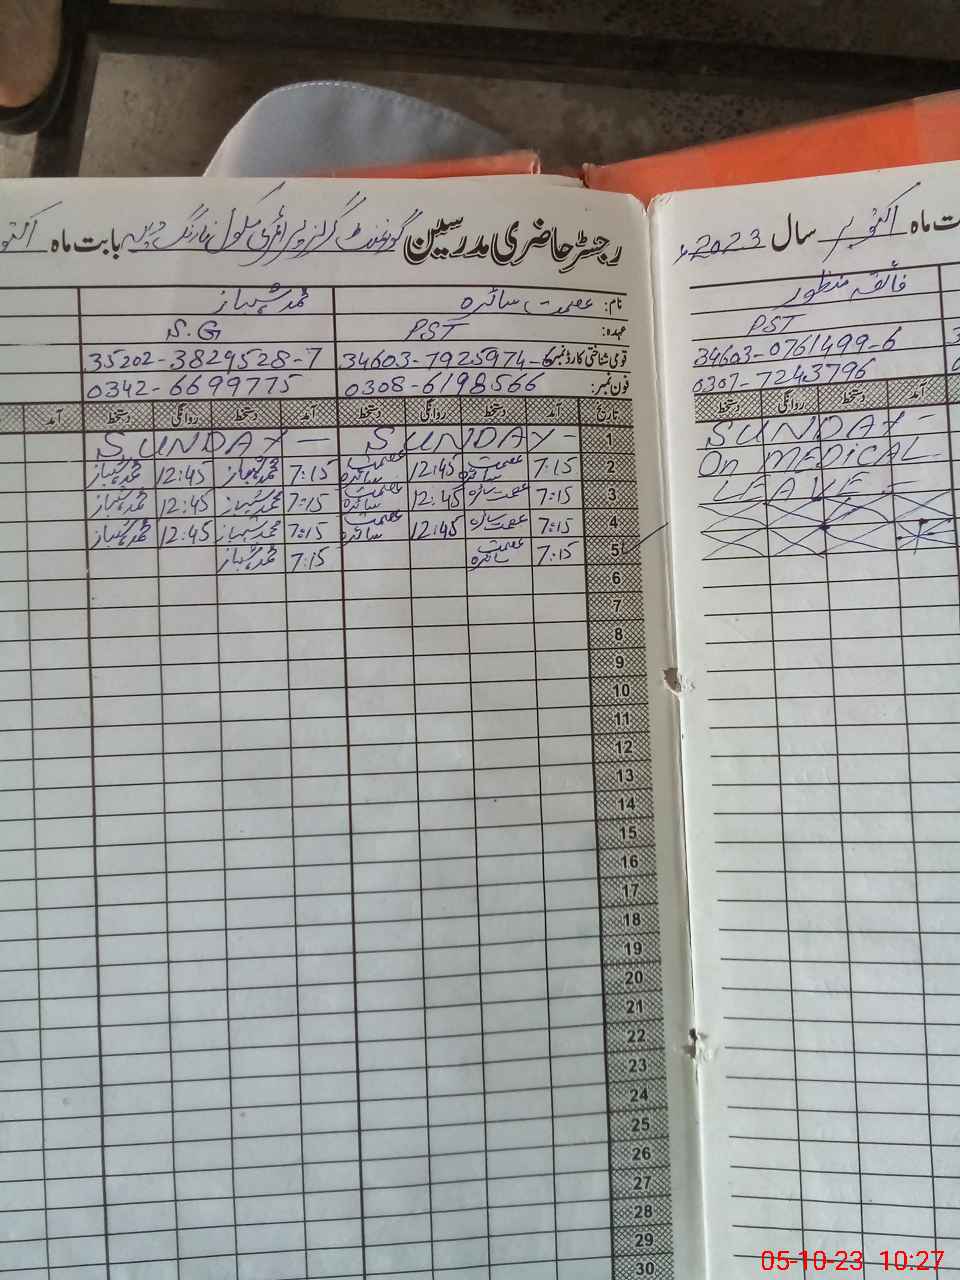 رجسٹر حاضری مدرسین گورنمنٹ گرلز پرائمری سکول نارنگ بابت ماہ
نام: عصمت سائرہ محمد شہباز
عہدہ: PST S.G
قومی شناختی کارڈ نمبر: 34603-7925974-6 35202-3829528-7
فون نمبر: 0308-6198566 0342-6699775
تاریخ آمد دستخط روانگی دستخط آمد دستخط روانگی دستخط آمد
1 SUNDAY - SUNDAY -
2 7:15 عصمت سائرہ 12:45 عصمت سائرہ 7:15 محمد شہباز 12:45 محمد شہباز
3 7:15 عصمت سائرہ 12:45 عصمت سائرہ 7:15 محمد شہباز 12:45 محمد شہباز
4 7:15 عصمت سائرہ 12:45 عصمت سائرہ 7:15 محمد شہباز 12:45 محمد شہباز
5 7:15 عصمت سائرہ 7:15 محمد شہباز
6
7
8
9
10
11
12
13
14
15
16
17
18
19
20
21
22
23
24
25
26
27
28
29
30
ت ماہ اکتوبر سال 2023ء
فائقہ منظور
PST
34603-0761499-6
0307-7243796
آمد دستخط روانگی دستخط
SUNDAY -
On MEDICAL
LEAVE -
05-10-23 10:27